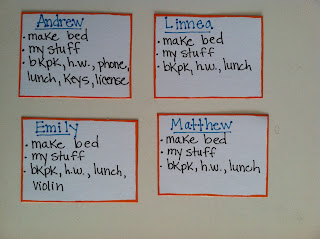 Andrew
• make bed
• my stuff
• bkpk, h.w., phone,
lunch, keys, license
Linnea
• make bed
• my stuff
• bkpk, h.w., lunch
Emily
• make bed
• my stuff
• bkpk, h.w., lunch,
violin
Matthew
• make bed
• my stuff
• bkpk, h.w., lunch